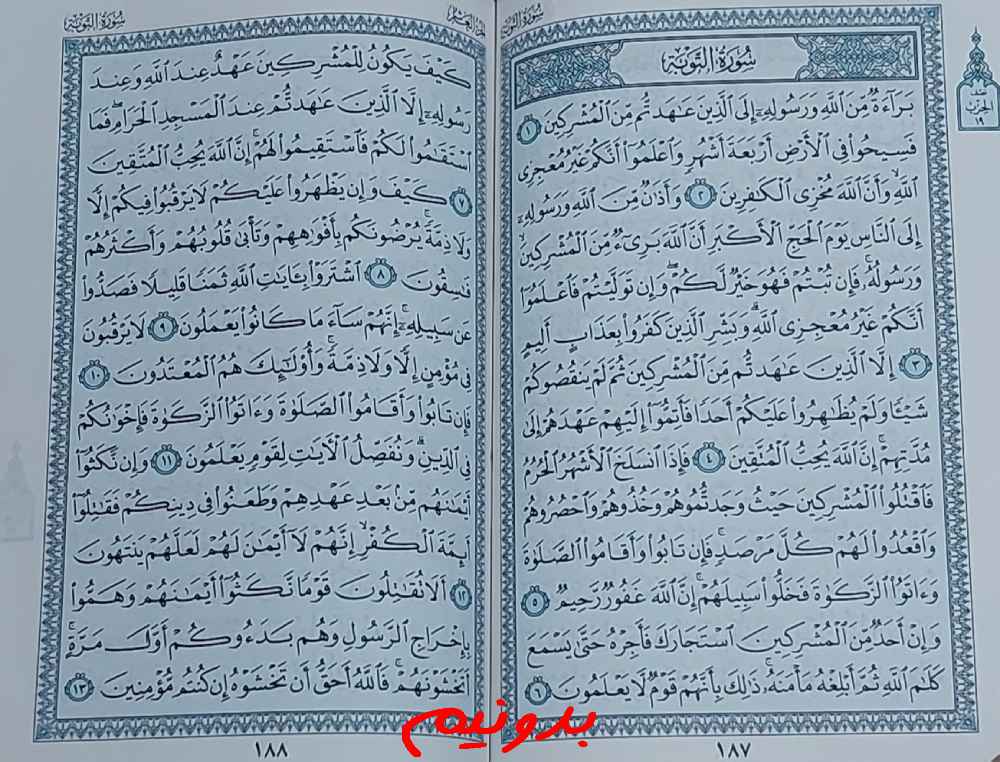 سُورَةُ التَّوْبَةِ
بَرَآءَةٌ مِّنَ ٱللَّهِ وَرَسُولِهِۦٓ إِلَى ٱلَّذِينَ عَٰهَدتُّم مِّنَ ٱلْمُشْرِكِينَ ١
فَسِيحُوا۟ فِى ٱلْأَرْضِ أَرْبَعَةَ أَشْهُرٍ وَٱعْلَمُوٓا۟ أَنَّكُمْ غَيْرُ مُعْجِزِى
ٱللَّهِ ۙ وَأَنَّ ٱللَّهَ مُخْزِى ٱلْكَٰفِرِينَ ٢ وَأَذَٰنٌ مِّنَ ٱللَّهِ وَرَسُولِهِۦٓ
إِلَى ٱلنَّاسِ يَوْمَ ٱلْحَجِّ ٱلْأَكْبَرِ أَنَّ ٱللَّهَ بَرِىٓءٌ مِّنَ ٱلْمُشْرِكِينَ ۙ
وَرَسُولُهُۥ ۚ فَإِن تُبْتُمْ فَهُوَ خَيْرٌ لَّكُمْ ۖ وَإِن تَوَلَّيْتُمْ فَٱعْلَمُوٓا۟
أَنَّكُمْ غَيْرُ مُعْجِزِى ٱللَّهِ ۗ وَبَشِّرِ ٱلَّذِينَ كَفَرُوا۟ بِعَذَابٍ أَلِيمٍ
٣ إِلَّا ٱلَّذِينَ عَٰهَدتُّم مِّنَ ٱلْمُشْرِكِينَ ثُمَّ لَمْ يَنقُصُوكُمْ
شَيْـًٔا وَلَمْ يُظَٰهِرُوا۟ عَلَيْكُمْ أَحَدًا فَأَتِمُّوٓا۟ إِلَيْهِمْ عَهْدَهُمْ إِلَىٰ
مُدَّتِهِمْ ۚ إِنَّ ٱللَّهَ يُحِبُّ ٱلْمُتَّقِينَ ٤ فَإِذَا ٱنسَلَخَ ٱلْأَشْهُرُ ٱلْحُرُمُ
فَٱقْتُلُوا۟ ٱلْمُشْرِكِينَ حَيْثُ وَجَدتُّمُوهُمْ وَخُذُوهُمْ وَٱحْصُرُوهُمْ
وَٱقْعُدُوا۟ لَهُمْ كُلَّ مَرْصَدٍ ۚ فَإِن تَابُوا۟ وَأَقَامُوا۟ ٱلصَّلَوٰةَ
وَءَاتَوُا۟ ٱلزَّكَوٰةَ فَخَلُّوا۟ سَبِيلَهُمْ ۚ إِنَّ ٱللَّهَ غَفُورٌ رَّحِيمٌ ٥
وَإِنْ أَحَدٌ مِّنَ ٱلْمُشْرِكِينَ ٱسْتَجَارَكَ فَأَجِرْهُ حَتَّىٰ يَسْمَعَ
كَلَٰمَ ٱللَّهِ ثُمَّ أَبْلِغْهُ مَأْمَنَهُۥ ۚ ذَٰلِكَ بِأَنَّهُمْ قَوْمٌ لَّا يَعْلَمُونَ ٦
١٨٧
سُورَةُ التَّوْبَةِ
كَيْفَ يَكُونُ لِلْمُشْرِكِينَ عَهْدٌ عِندَ ٱللَّهِ وَعِندَ
رَسُولِهِۦٓ إِلَّا ٱلَّذِينَ عَٰهَدتُّمْ عِندَ ٱلْمَسْجِدِ ٱلْحَرَامِ ۖ فَمَا
ٱسْتَقَٰمُوا۟ لَكُمْ فَٱسْتَقِيمُوا۟ لَهُمْ ۚ إِنَّ ٱللَّهَ يُحِبُّ ٱلْمُتَّقِينَ
٧ كَيْفَ وَإِن يَظْهَرُوا۟ عَلَيْكُمْ لَا يَرْقُبُوا۟ فِيكُمْ إِلًّا
وَلَا ذِمَّةً ۚ يُرْضُونَكُم بِأَفْوَٰهِهِمْ وَتَأْبَىٰ قُلُوبُهُمْ وَأَكْثَرُهُمْ
فَٰسِقُونَ ٨ ٱشْتَرَوْا۟ بِـَٔايَٰتِ ٱللَّهِ ثَمَنًا قَلِيلًا فَصَدُّوا۟
عَن سَبِيلِهِۦٓ ۚ إِنَّهُمْ سَآءَ مَا كَانُوا۟ يَعْمَلُونَ ٩ لَا يَرْقُبُونَ
فِى مُؤْمِنٍ إِلًّا وَلَا ذِمَّةً ۚ وَأُو۟لَٰٓئِكَ هُمُ ٱلْمُعْتَدُونَ ١٠
فَإِن تَابُوا۟ وَأَقَامُوا۟ ٱلصَّلَوٰةَ وَءَاتَوُا۟ ٱلزَّكَوٰةَ فَإِخْوَٰنُكُمْ
فِى ٱلدِّينِ ۗ وَنُفَصِّلُ ٱلْءَايَٰتِ لِقَوْمٍ يَعْلَمُونَ ١١ وَإِن نَّكَثُوٓا۟
أَيْمَٰنَهُم مِّنۢ بَعْدِ عَهْدِهِمْ وَطَعَنُوا۟ فِى دِينِكُمْ فَقَٰتِلُوٓا۟
أَئِمَّةَ ٱلْكُفْرِ ۙ إِنَّهُمْ لَآ أَيْمَٰنَ لَهُمْ لَعَلَّهُمْ يَنتَهُونَ
١٢ أَلَا تُقَٰتِلُونَ قَوْمًا نَّكَثُوٓا۟ أَيْمَٰنَهُمْ وَهَمُّوا۟
بِإِخْرَاجِ ٱلرَّسُولِ وَهُم بَدَءُوكُمْ أَوَّلَ مَرَّةٍ ۚ
أَتَخْشَوْنَهُمْ ۚ فَٱللَّهُ أَحَقُّ أَن تَخْشَوْهُ إِن كُنتُم مُّؤْمِنِينَ ١٣
١٨٨
بدونیم